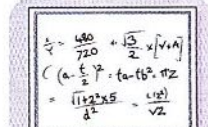 x/y = 480/720 + √3/2 × [V+A]
(a-t/2)² = ta-tb² · πz
= √(1+2²×5)/d² = (1²)/√2